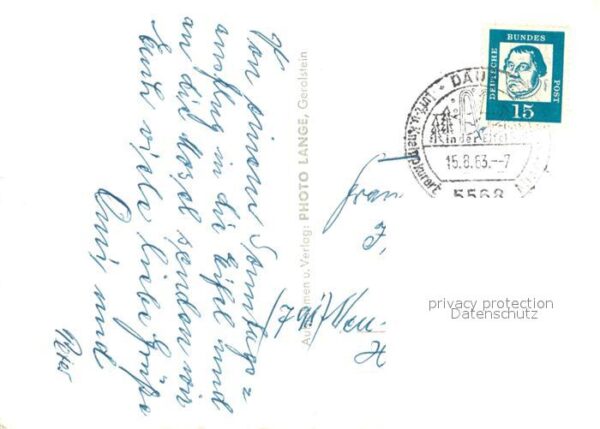 Von einem Sonntags=
ausflug in die Eifel und
an die Mosel senden wir
Euch viele liebe Grüße
und
Peter
Aufnahmen u. Verlag: PHOTO LANGE, Gerolstein
DEUTSCHE
BUNDES
POST
15
DAUN
in der Eifel
15.8.63.–7
5568
Frau
J.
(7917)
H
privacy protection
Datenschutz